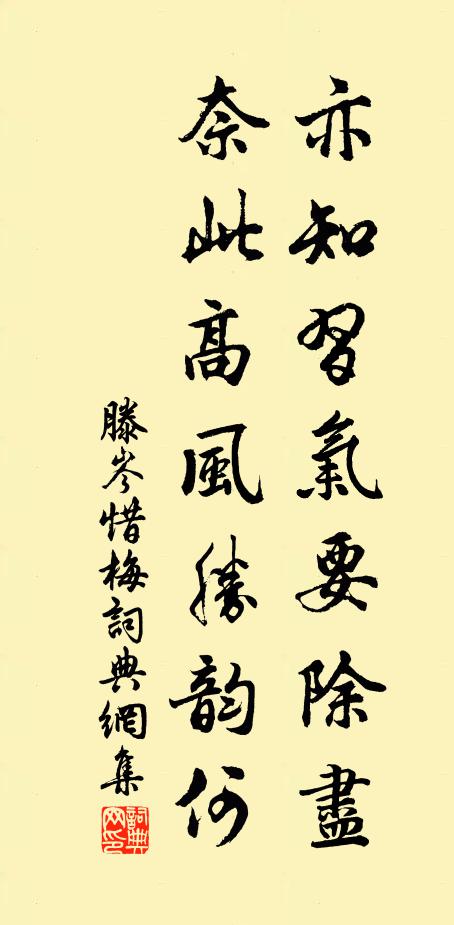 亦知習氣要除盡
奈此高風勝韵何
滕岑惜梅詞典網集
詞典网印